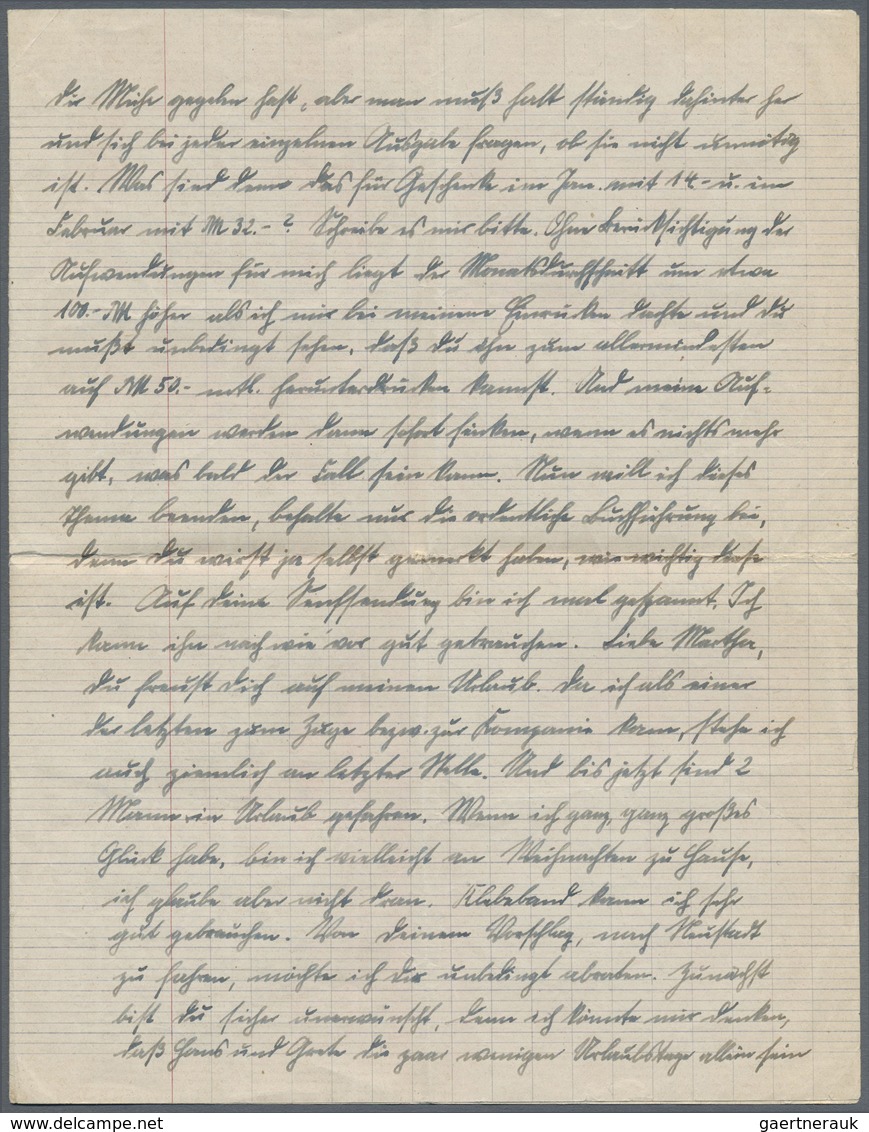 dir Mühe gegeben hast, aber man muß halt ständig dahinter her
und sich bei jeder einzelnen Ausgabe fragen, ob sie nicht unnötig
ist. Was sind denn das für Geschenke im Jan. mit 14.- u. im
Februar mit RM 32.- ? Schreibe es mir bitte. Ohne Berücksichtigung der
Aufwendungen für mich liegt der Monatsdurchschnitt um etwa
100.- RM höher als ich mir bei meinem Einrücken dachte und du
mußt unbedingt sehen, daß du ihn zum allermindesten
auf RM 50.- mtl. herunterdrücken kannst. Und meine Auf-
wendungen werden dann sofort sinken, wenn es nichts mehr
gibt, was bald der Fall sein kann. Nun will ich dieses
Thema beenden, behalte nur die ordentliche Buchführung bei,
denn du wirst ja selbst gemerkt haben, wie wichtig diese
ist. Auf deine Senfsendung bin ich mal gespannt. Ich
kann ihn nach wie vor gut gebrauchen. Liebe Martha,
du freust dich auf meinen Urlaub. Da ich als einer
der letzten zum Zuge bezw. zur Kompanie kam, stehe ich
auch ziemlich an letzter Stelle. Und bis jetzt sind 2
Mann in Urlaub gefahren. Wenn ich ganz, ganz großes
Glück habe, bin ich vielleicht an Weihnachten zu Hause,
ich glaube aber nicht dran. Klebeband kann ich sehr
gut gebrauchen. Von deinem Vorschlag, nach Neustadt
zu fahren, möchte ich dir unbedingt abraten. Zunächst
bist du sicher unerwünscht, denn ich könnte mir denken,
daß Hans und Grete die paar wenigen Urlaubstage allein sein
www.delcampe.net
gaertnerauk